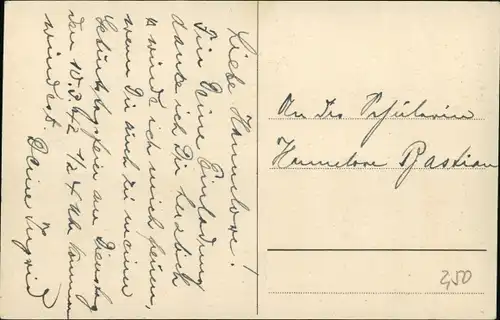 Liebe Hannelore!
Für Deine Einladung
danke ich Dir herzlich
würde ich mich freuen,
wenn Du auch zu meiner
Geburtstagsfeier am Dienstag
den 10.3. 1/2 4 Uhr kommen
würdest
Deine Ingrid
An die Schülerin
Hannelore Bastian
2,50